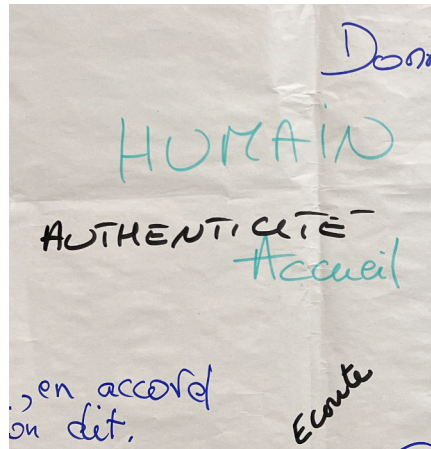 Don
HUMAIN
AUTHENTICITÉ
Accueil
, en accord
on dit.
Ecoute